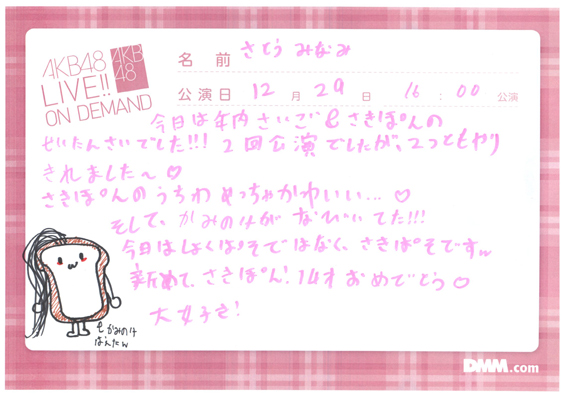 AKB48
LIVE!!
ON DEMAND
AKB
48
名 前 さとう みなみ
公演日 12 月 29 日 16 : 00 公演
今日は年内さいご&さきぽんの
せいたんさいでした!!! 2回公演でしたが、2つともやり
きれました〜♡
さきぽんのうちわめっちゃかわいい...♡
そして、かみの毛がなびいてた!!!
今日はしょくぱそではなく、さきぱそですw
改めて、さきぽん!14才おめでとう♡
大好き!
もかみの毛
はえたw
DMM.com